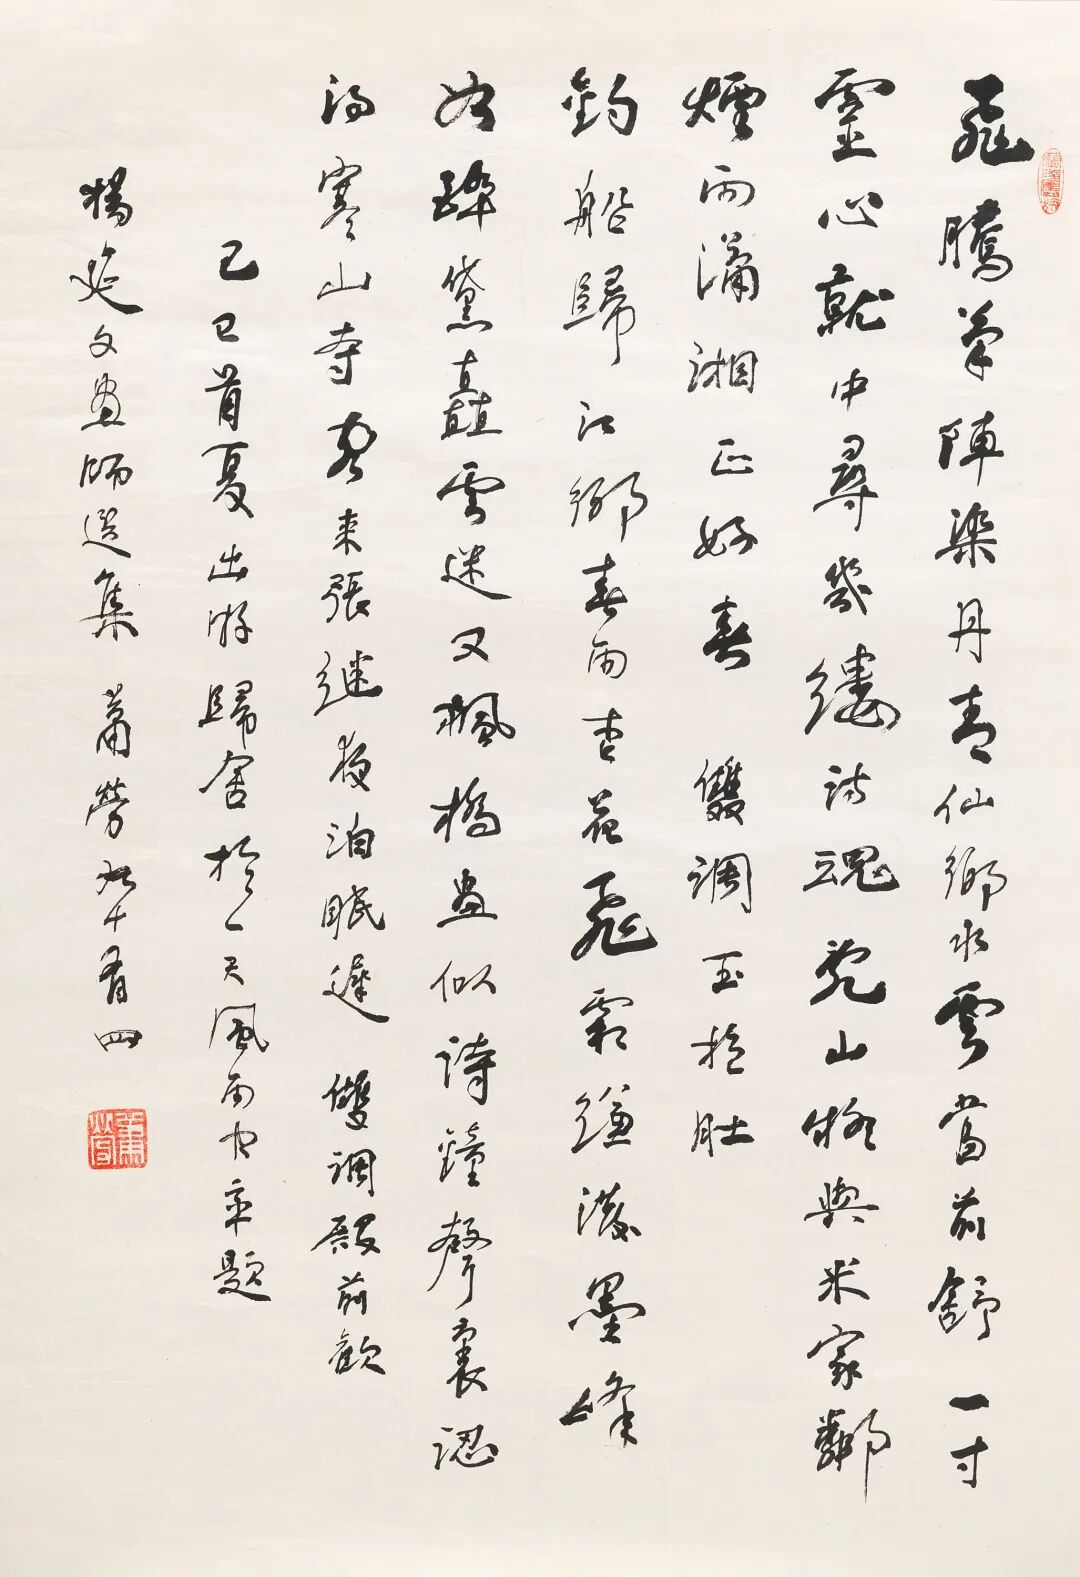 飛騰筆陣染丹青仙鄉水雲當前舒一寸
靈心就中尋幾縷詩魂山與米家鄰
煙雨瀟湘正好春 雙調玉抱肚
釣船歸江鄉春雨杏花飛霜縑潑墨峰
如醉黛矗雲迷又楓橋畫似詩鐘聲裏認
得寒山寺客来張继夜泊眠遲 雙調殿前歡
己巳首夏出游歸舍於一天風雨中率題
楊延文畫師選集 蕭勞九十有四
蕭勞